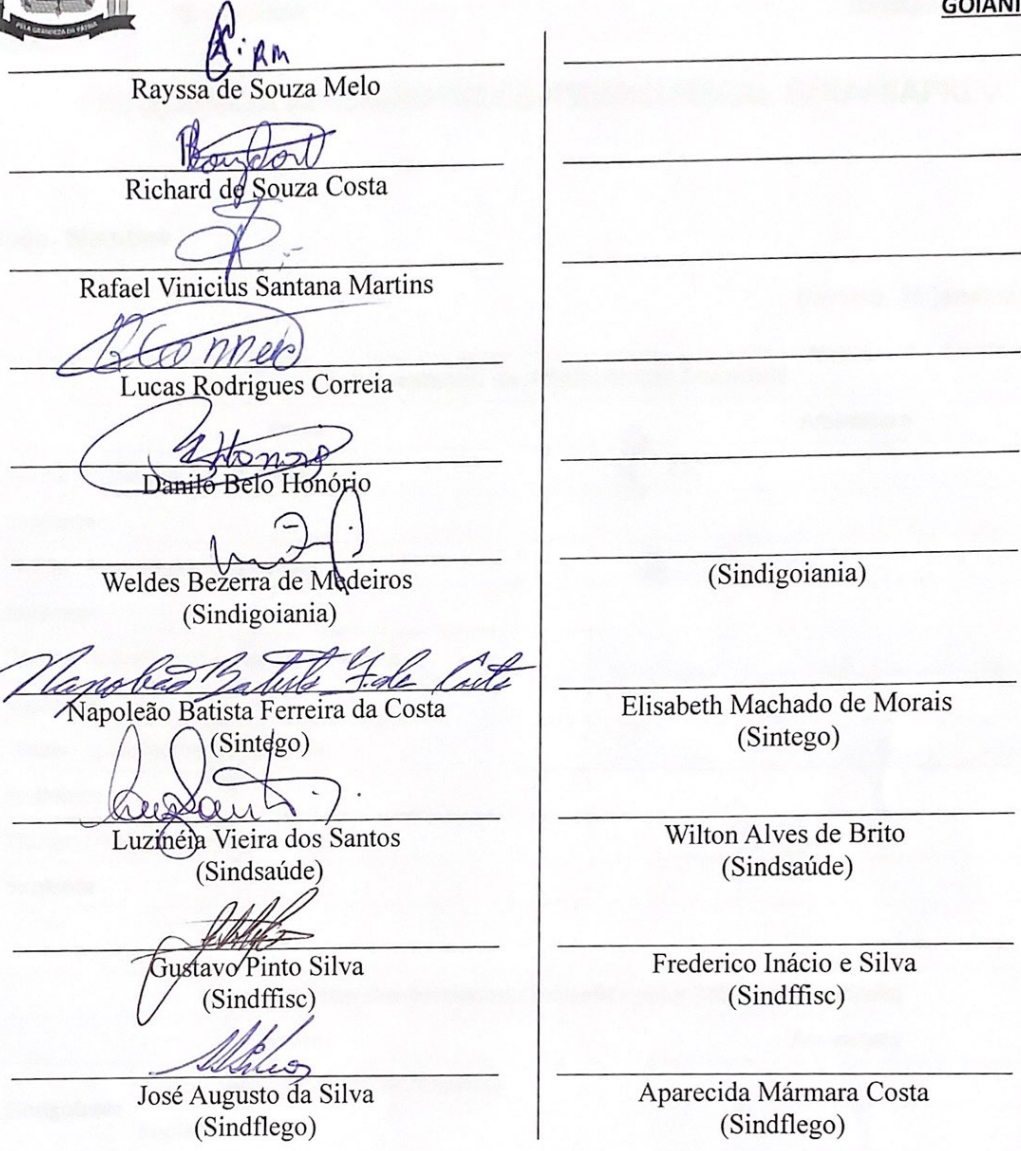 PELA GRANDEZA DA PÁTRIA
GOIANI
Rayssa de Souza Melo
Richard de Souza Costa
Rafael Vinicius Santana Martins
Lucas Rodrigues Correia
Danilo Belo Honório
Weldes Bezerra de Medeiros
(Sindigoiania)
Napoleão Batista F. da Costa
Napoleão Batista Ferreira da Costa
(Sintego)
Luzinéia Vieira dos Santos
(Sindsaúde)
Gustavo Pinto Silva
(Sindffisc)
José Augusto da Silva
(Sindflego)
(Sindigoiania)
Elisabeth Machado de Morais
(Sintego)
Wilton Alves de Brito
(Sindsaúde)
Frederico Inácio e Silva
(Sindffisc)
Aparecida Mármara Costa
(Sindflego)